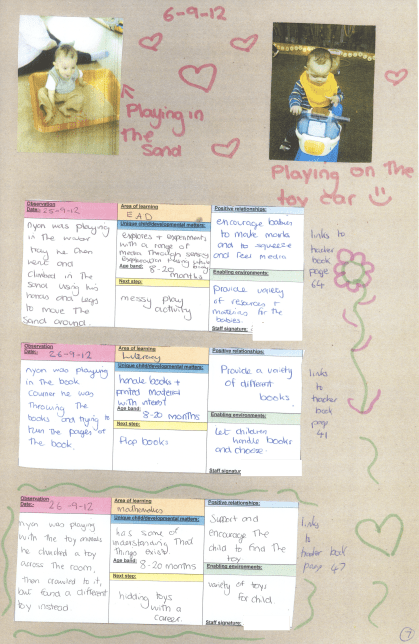 6-9-12
Playing in
The
Sand
Playing on The
toy car
Observation
Date:- 25-9-12
nyan was playing
in The water
tray he then
went and
climbed in The
Sand using his
hands and legs
to move The
Sand around.
Area of learning
EAD
Unique child/developmental matters:
explores + experiments
with a range of
media Through sensory
exploration
Age band: 8-20
months
Next step:
messy play
activity
Positive relationships:
encourage babies
to make marks
and to squeeze
and feel media
Enabling environments:
provide variety
of resources +
materials for the
babies.
Staff signature:
links to
tracker
book
page
64
Observation
Date:- 26-9-12
nyan was playing
in The book
corner he was
Throwing The
books and trying to
turn the pages of
The book.
Area of learning
Literacy
Unique child/developmental matters:
handle books +
printed material
with interest
Age band:
8-20 months
Next step:
Flap books
Positive relationships:
Provide a variety
of different
books.
Enabling environments:
Let children
handle books
and choose.
Staff signatur
links
to
tracker
book
page
41
Observation
Date:- 26-9-12
nyan was playing
with The toy animals
he chucked a toy
across The room,
Then crawled to it,
but found a different
toy instead.
Area of learning
mathematics
Unique child/developmental matters:
has some of
understanding That
Things exist
Age band: 8-20 months
Next step:
hidding toys
with a
career.
Positive relationships:
Support and
encourage The
child to find The
toy
Enabling environments:
variety of toys
for child.
Staff signature:
links
to
tracker book
page 47
7